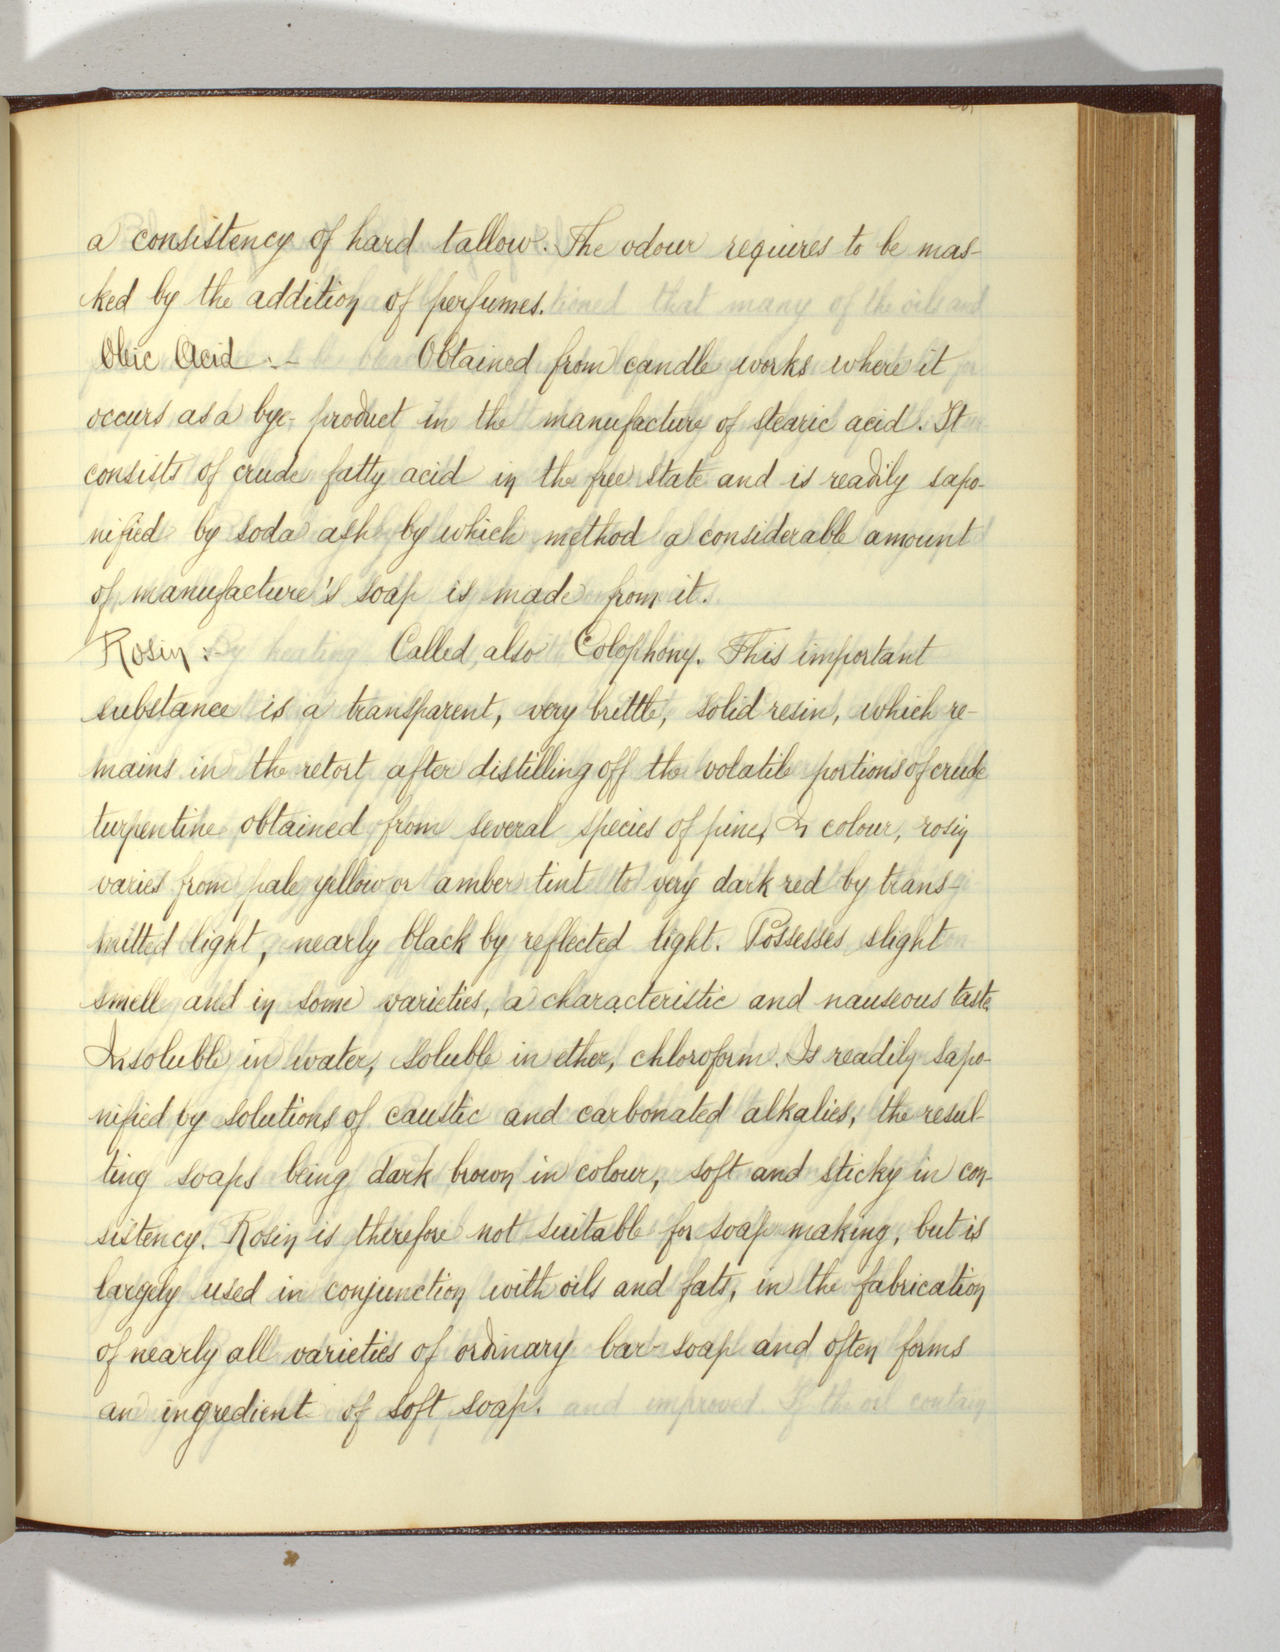 a consistency of hard tallow. The odour requires to be mas-
ked by the addition of perfumes.
Oleic Acid :- Obtained from candle works where it
occurs as a bye-product in the manufacture of stearic acid. It
consists of crude fatty acid in the free state and is readily sapo-
nified by soda ash by which method a considerable amount
of manufacture's soap is made from it.
Rosin :- Called also Colophony. This important
substance is a transparent, very brittle, solid resin, which re-
mains in the retort after distilling off the volatile portions of crude
turpentine obtained from several species of pine, In colour, rosin
varies from pale yellow or amber tint to very dark red by trans-
mitted light, nearly black by reflected light. Possesses slight
smell and in some varieties, a characteristic and nauseous taste.
Insoluble in water, soluble in ether, chloroform. Is readily sapo-
nified by solutions of caustic and carbonated alkalies, the resul-
ting soaps being dark brown in colour, soft and sticky in con-
sistency. Rosin is therefore not suitable for soap making, but is
largely used in conjunction with oils and fats, in the fabrication
of nearly all varieties of ordinary bar-soap and often forms
an ingredient of soft soap.